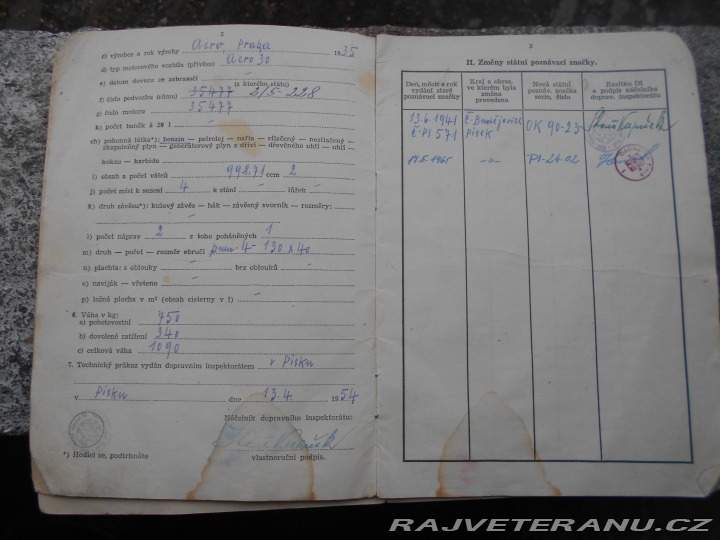 2
c) výrobce a rok výroby Aero, Praha 1935
d) typ motorového vozidla (přívěsu) Aero 30
e) datum dovozu ze zahraničí -
(z kterého státu)
f) číslo podvozku (rámu) 35477 2/5-228
g) číslo motoru 35477
h) počet baněk à 20 l - -
ch) pohonná látka*): benzin — petrolej — nafta — stlačený — nestlačený —
zkapalněný plyn — generátorový plyn z dříví — dřevěného uhlí — uhlí —
koksu — karbidu
i) obsah a počet válců 998.71 ccm 2
j) počet míst k sezení 4 k stání - lůžek -
k) druh závěsu*): kulový závěs — hák — závěsný svorník — rozměry:
-
l) počet náprav 2 z toho poháněných 1
m) druh — počet — rozměr obručí pneu - 4 - 130 x 40
n) plachta: s oblouky - bez oblouků -
o) naviják — vřeteno -
p) ložná plocha v m² (obsah cisterny v l) -
6. Váha v kg:
a) pohotovostní 750
b) dovolené zatížení 340
c) celková váha 1090
7. Technický průkaz vydán dopravním inspektorátem v Písku
v Písku dne 13.4 1954
Náčelník dopravního inspektorátu:
vlastnoruční podpis.
*) Hodící se, podtrhněte
3
II. Změny státní poznávací značky.
Den, měsíc a rok vydání staré poznávací značky
Kraj a okres, ve kterém byla změna provedena
Nová státní poznáv. značka serie, číslo
Razítko DI a podpis náčelníka doprav. inspektorátu
Č. Budějovice
Č-PI 571 Písek OK 90-23
-"- PI-24-02
RAJVETERANU.CZ